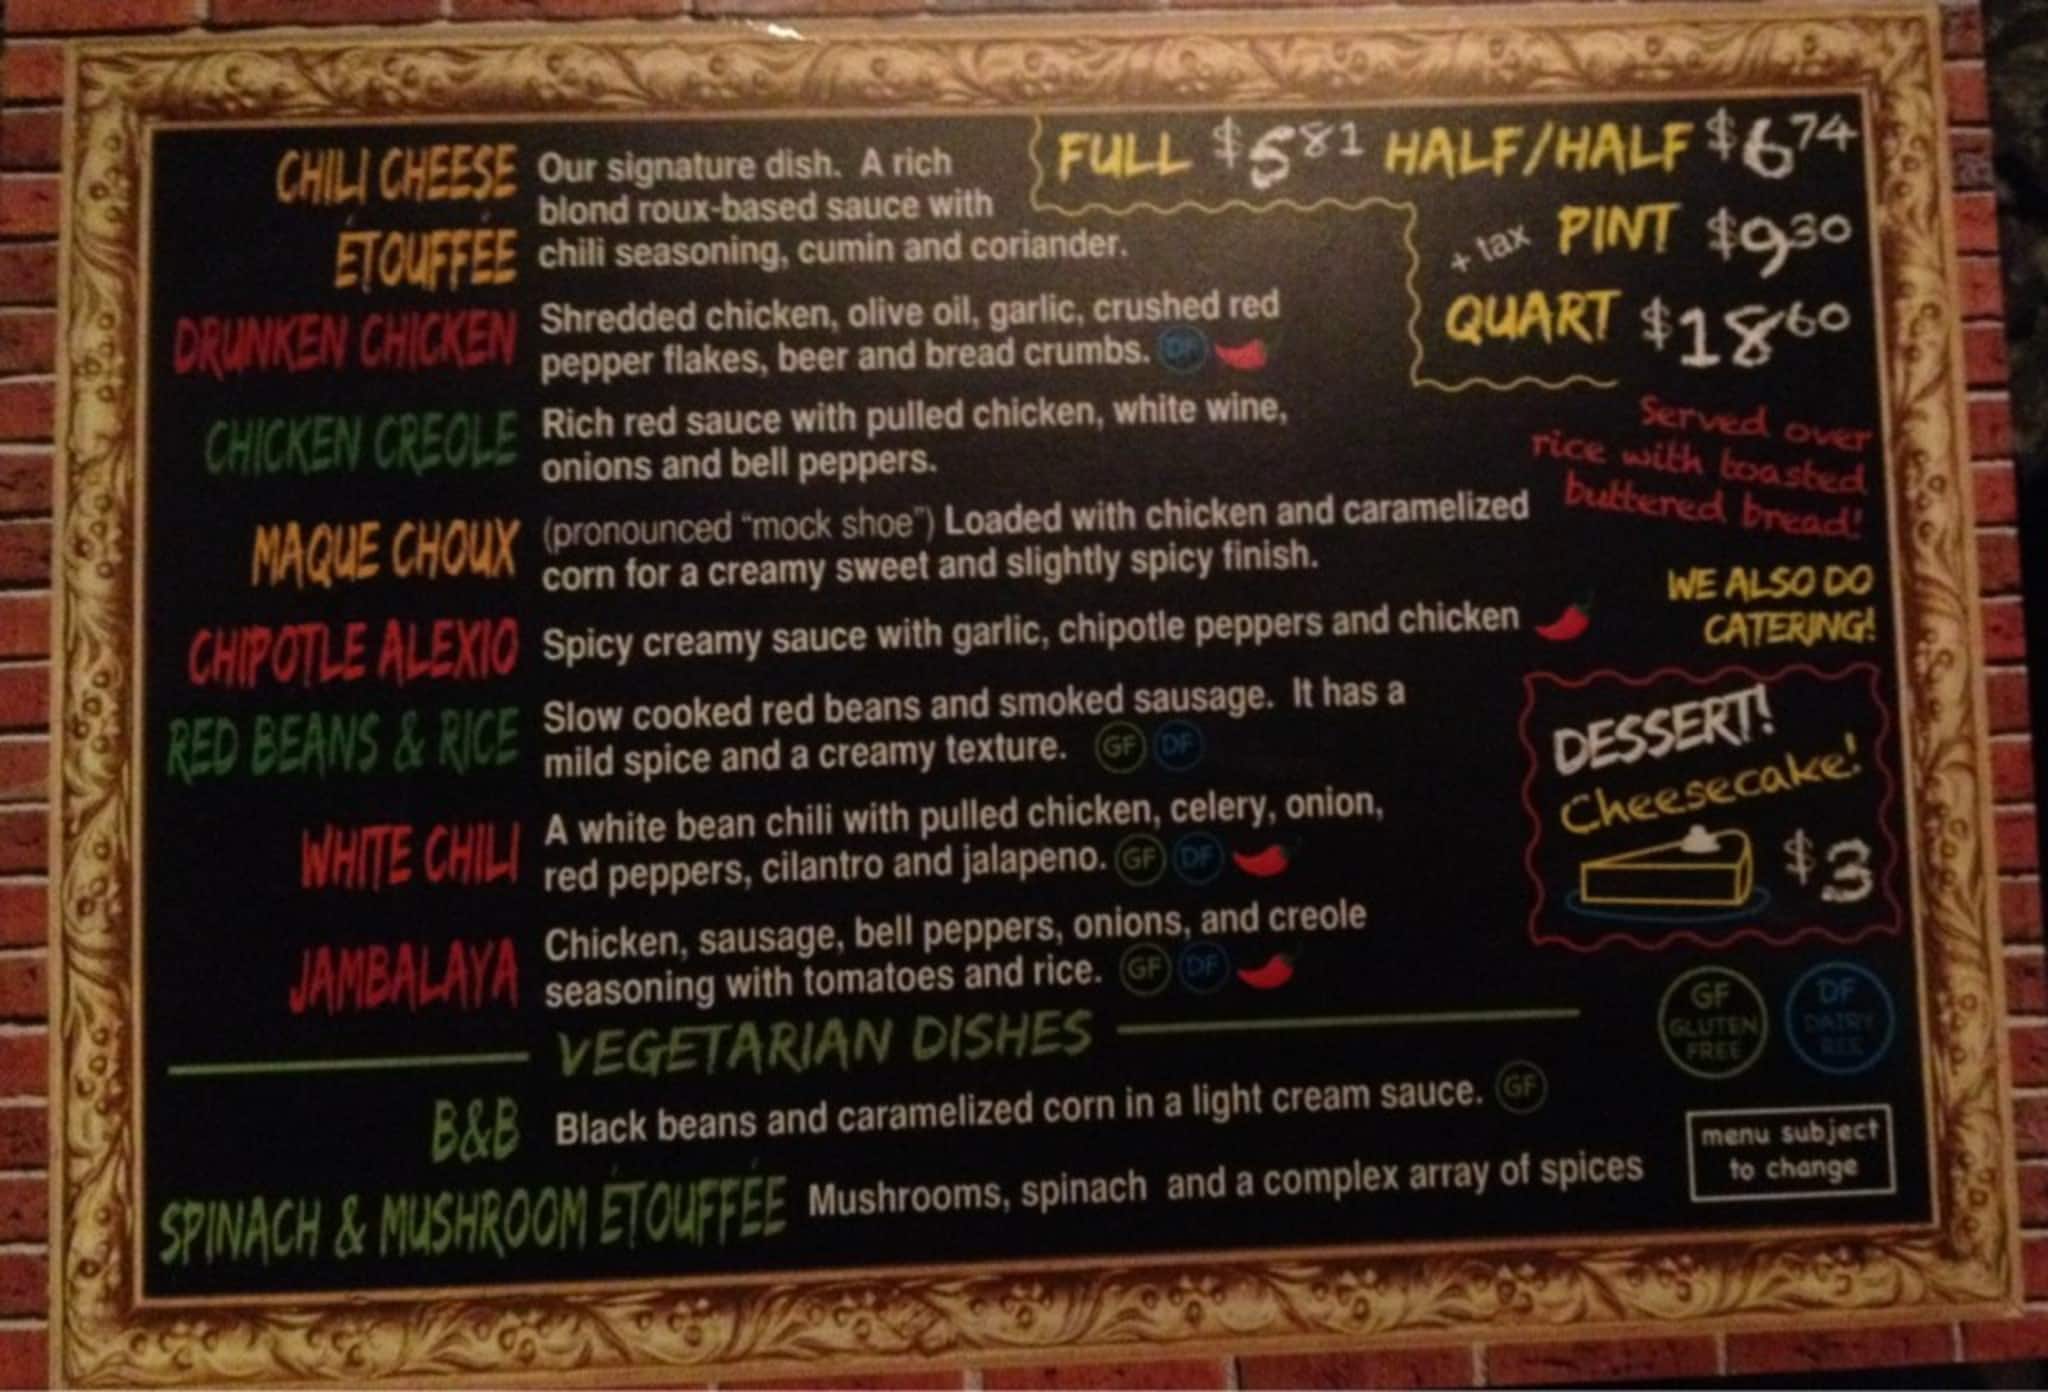 CHILI CHEESE
ÉTOUFFÉE
Our signature dish. A rich
blond roux-based sauce with
chili seasoning, cumin and coriander.
FULL $5 81 HALF/HALF $6 74
+ tax PINT $9 30
QUART $18 60
DRUNKEN CHICKEN
Shredded chicken, olive oil, garlic, crushed red
pepper flakes, beer and bread crumbs. DF
Served over
rice with toasted
buttered bread!
CHICKEN CREOLE
Rich red sauce with pulled chicken, white wine,
onions and bell peppers.
MAQUE CHOUX
(pronounced “mock shoe”) Loaded with chicken and caramelized
corn for a creamy sweet and slightly spicy finish.
WE ALSO DO
CATERING!
CHIPOTLE ALEXIO
Spicy creamy sauce with garlic, chipotle peppers and chicken
RED BEANS & RICE
Slow cooked red beans and smoked sausage. It has a
mild spice and a creamy texture. GF DF
DESSERT!
Cheesecake!
$3
WHITE CHILI
A white bean chili with pulled chicken, celery, onion,
red peppers, cilantro and jalapeno. GF DF
JAMBALAYA
Chicken, sausage, bell peppers, onions, and creole
seasoning with tomatoes and rice. GF DF
GF
GLUTEN
FREE
DF
DAIRY
FREE
VEGETARIAN DISHES
B&B
Black beans and caramelized corn in a light cream sauce. GF
SPINACH & MUSHROOM ÉTOUFFÉE
Mushrooms, spinach and a complex array of spices
menu subject
to change